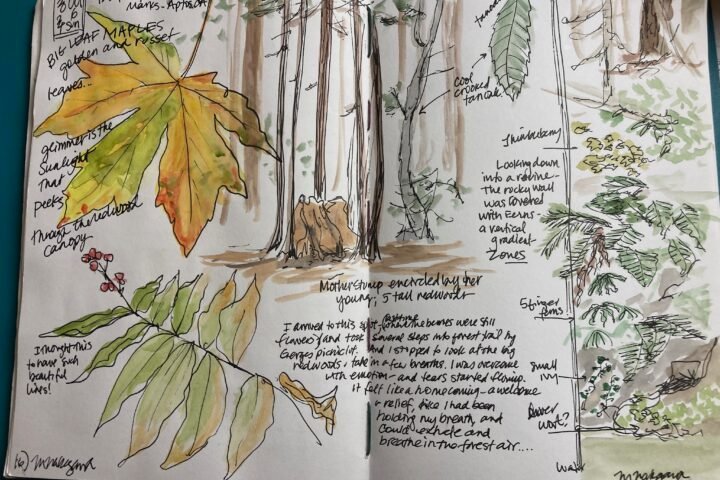 Marks-Aptos, CA
BIG LEAF MAPLES
golden and russet
leaves...
glimmer is the
Sunlight
That
peeks
through the redwood
canopy
I thought this
to have such
beautiful
lines!
Mother stump encircled by her
young; 5 tall redwoods
I arrived to this spot, where the berries were still
flowers and took several steps into forest trail by
Georges picnic lot. And I stopped to look at the big
redwoods & take in a few breaths. I was overcome
with emotion - and tears started flowing.
it felt like a homecoming - a welcome
& relief, like I had been
holding my breath, and
could exhale and
breathe in the forest air....
cool
crooked
tanoak
Thimbleberry
Looking down
into a ravine -
The rocky wall
was covered
with Ferns -
a vertical
gradient
Zones
5 finger
ferns
Small
ivy
wort?
Water